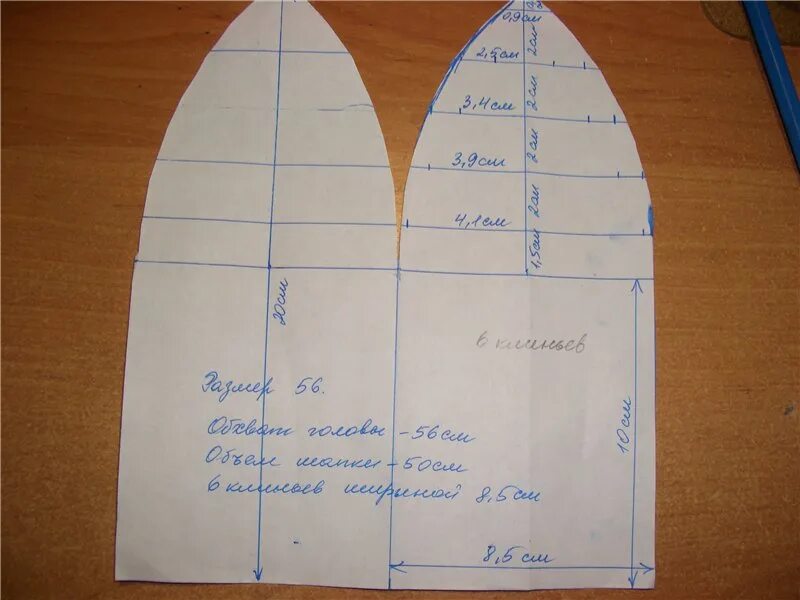 0,9см
2см
2,5см
2см
3,4см
2см
3,9см
2см
4,1см
1,5см
20см
6 клиньев
Размер 56.
10см
Обхват головы - 56см
Объем шапки - 50см
6 клиньев шириной 8,5см
8,5см